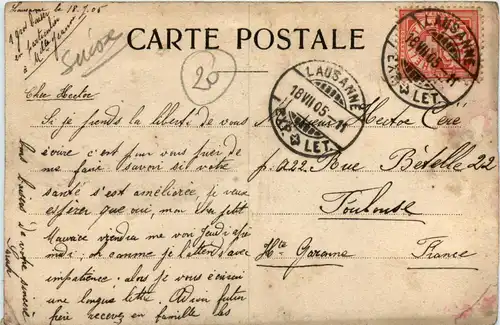 Lausanne le 18.7.05
1 gros baiser
en particulier
à
CARTE POSTALE
Suisse
20
LAUSANNE
18.VII.05.-11
EXP. LET.
LAUSANNE
18.VII.05.-11
EXP. LET.
Cher Hector
Si je prends la liberté de vous
écrire c'est pour vous prier de
me faire savoir si votre
santé s'est améliorée, je veux
espérer que oui, mon petit
Maurice viendra me voir Jeudi
je l'attends avec
impatience. alors je vous écrirai
une longue lettre. Adieu futur
frère recevez en famille les
bons baisers de votre
Monsieur Hector Céré
p. a 22. Rue Bételle 22
Toulouse
Hte Garonne France